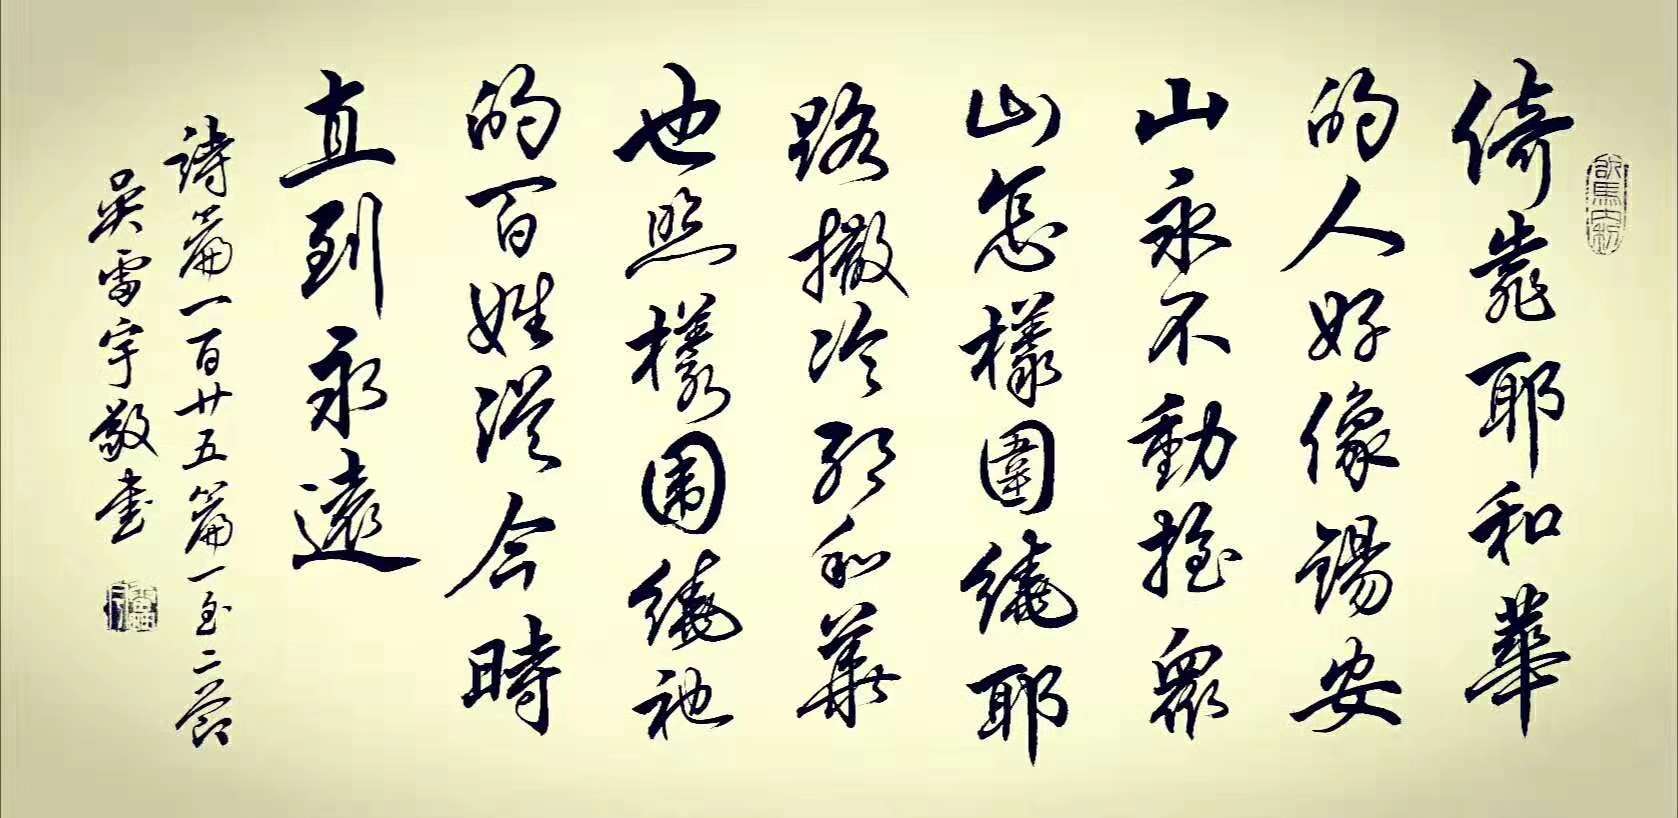 倚靠耶和華
的人好像錫安
山永不動摇眾
山怎樣圍繞耶
路撒冷耶和華
也照樣圍繞祂
的百姓從今時
直到永遠
詩篇一百廿五篇一至二節
吴雷宇敬書